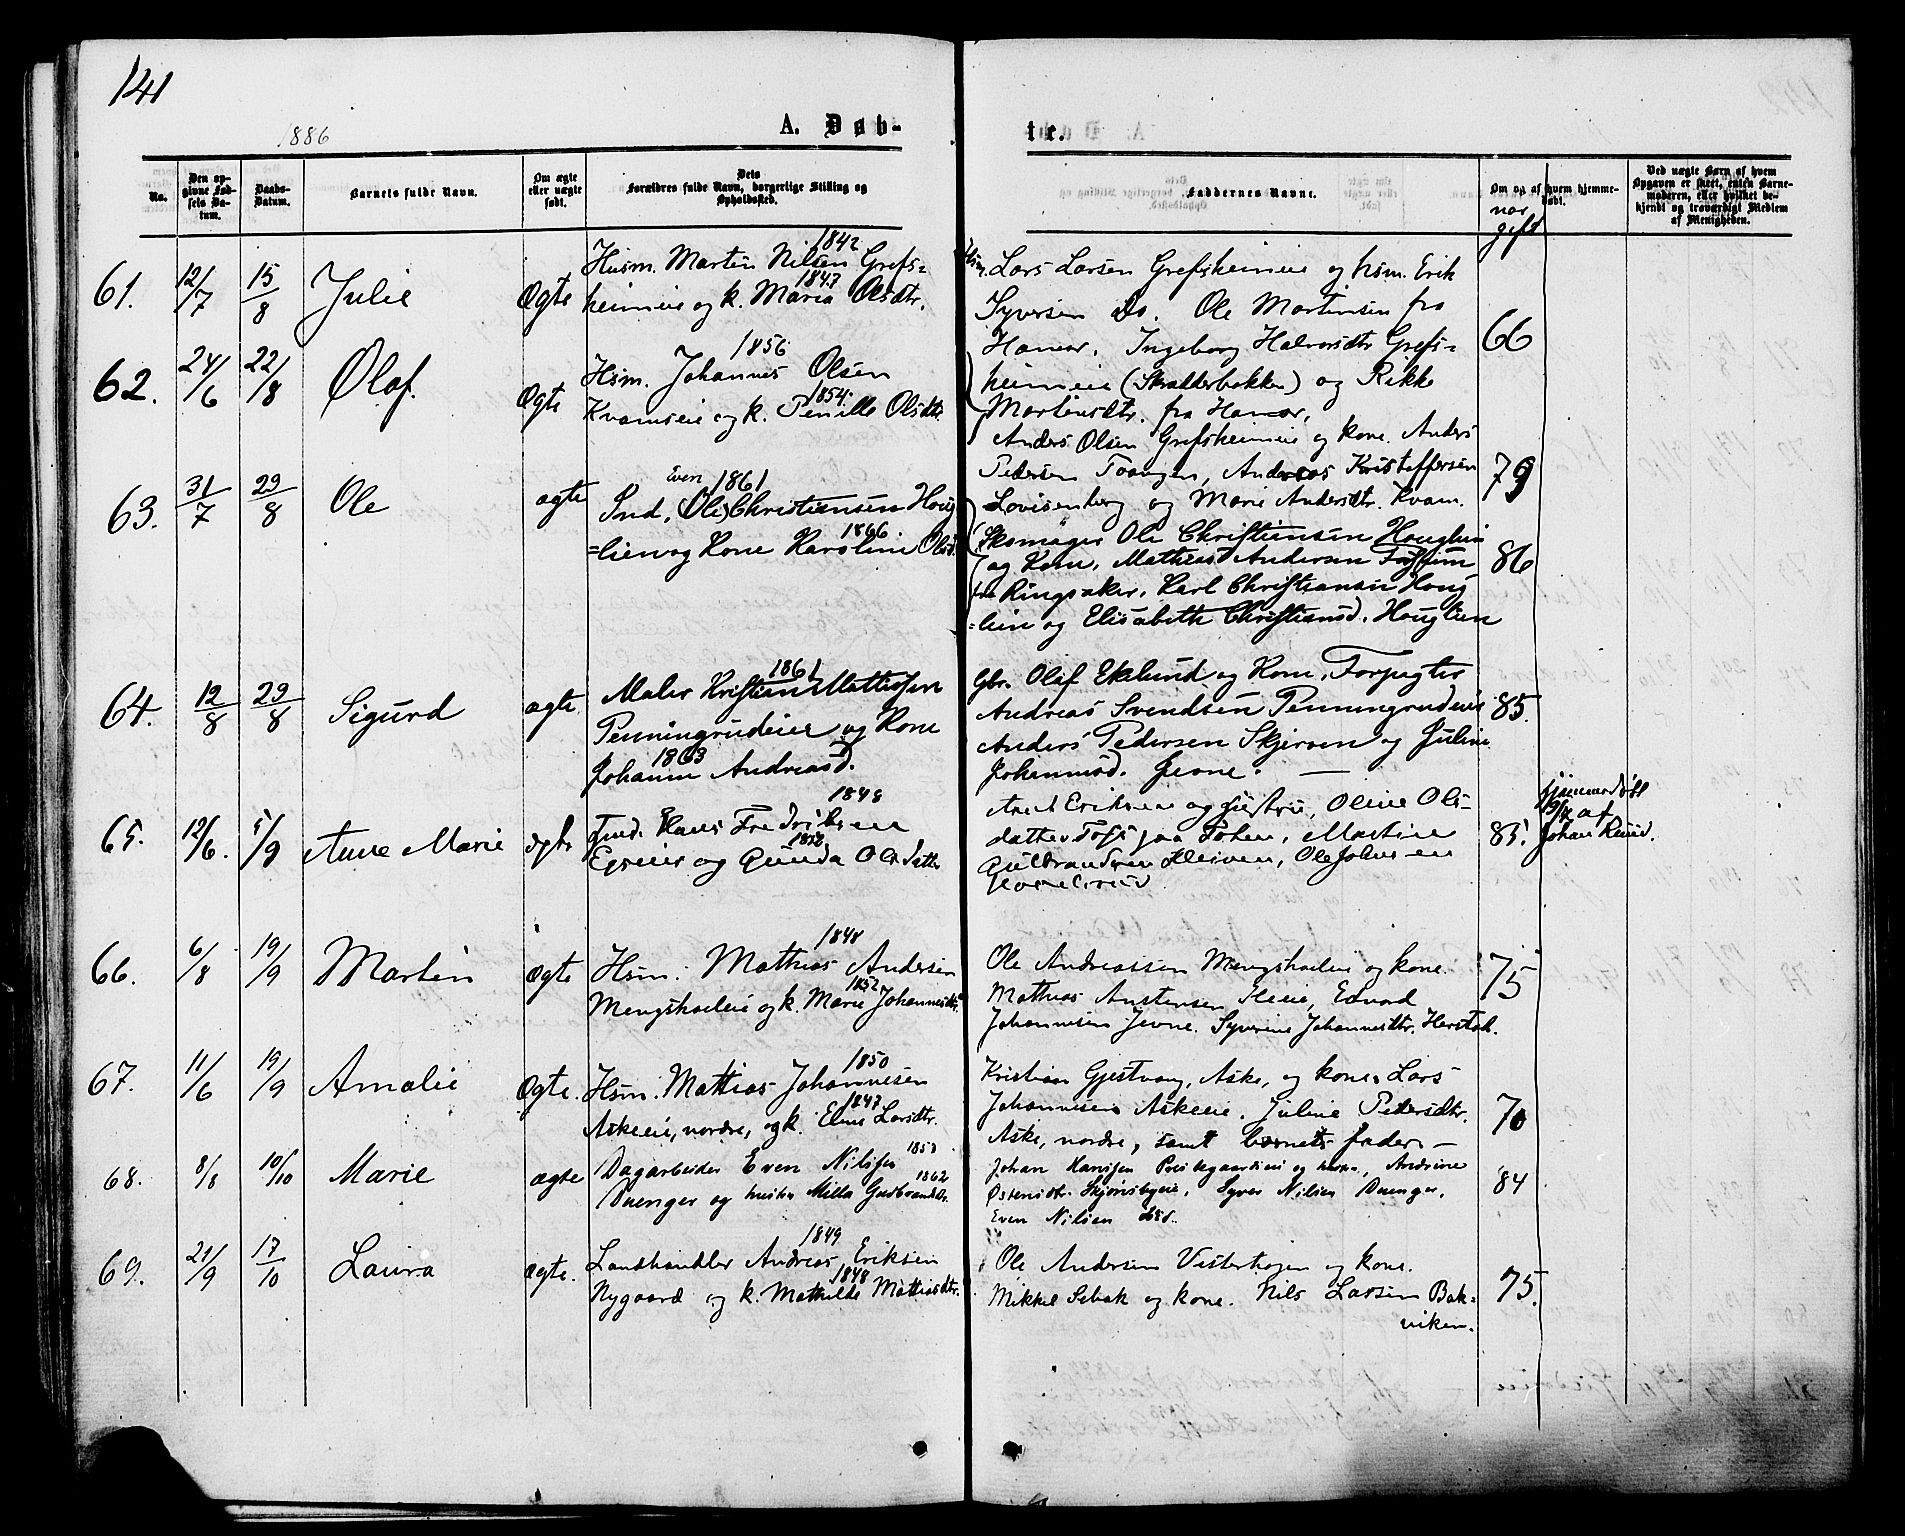 141
1886
A. Døb-
te.
No.
Den op-
givne Fød-
sels Da-
tum.
Daabs-
Datum.
Barnets fulde Navn.
Om ægte
eller uægte
født.
Dets
Forældres fulde Navn, borgerlige Stilling og
Opholdssted.
Faddernes Navne.
Om og af hvem hjemme-
døbt.
Ved uægte Børn af hvem
Opgaven er skeet, enten Barne-
moderen, eller hvilket be-
kjendt og troværdigt Medlem
af Menigheden.
naar
gift
61. 12/7 15/8 Julie Ægte
1842
Husm. Martin Nilsen Grefs-
1847
heimeie og k. Maria Olsdtr.
Hsm. Lars Larsen Grefsheimeie og hsm. Erik
Syversen do. Ole Martinsen fra
Hamar. Ingeborg Halvorsdtr Grefs-
heimeie (Skralderbakken) og Rikke
Martinsdtr. fra Hamar.
66
62. 24/6 22/8 Olaf. Ægte
1856
Hsm. Johannes Olsen
1854.
Kvamseie og k. Pernille Olsdtr.
Anders Olsen Grefsheimeie og kone. Anders
Pedersen Toangen, Andreas Kristoffersen
Lovisenberg og Marie Andersdtr. Kvam.
79
63. 31/7 29/8 Ole ægte
Even 1861
Ind. (Ole) Christiansen Houg
1866.
=lien og Kone Karoline Olsd.
Skomager Ole Christiansen Houglien
og Kone, Mathias Andersen
fra Ringsaker, Karl Christiansen Houg
=lien og Elisabeth Christiansd. Houglien
86
64. 12/8 29/8 Sigurd ægte
1861
Maler Kristian Mathisen
Penningrudeier og Kone
1863
Johanne Andreasd.
Gbr. Olaf Eklund og Kone, Forpagter
Andreas Svendsen Penningrudeie
Anders Pedersen Skjerven og Juline
Johannesd. Jevne. —
85.
65. 12/6. 5/9 Anne Marie ægte
1848
Ind. Hans Fredriksen
1852
Egseier og Gunda Olsdatter
Eriksen og Hustru, Oline Ols-
datter Toft paa Toten, Martin
Gulbrandsen Kleiven, Ole Johnsen
85.
hjemmedøbt
af
Johan Ruud.
66. 6/8 19/9 Martin ægte
1848
Hsm. Mathias Andersen
1852
Mengshoeleie og k. Marie Johannesdtr.
Ole Andreassen Mengshoeleie og kone.
Mathias Austensen Eieie, Edvard
Johannesen Jevne. Syverine Johannesdtr. Herstad.
75
67. 11/6 19/9 Amalie Ægte.
1850
Hsm. Mattias Johannesen
1847
Askeeie, nordre, og k. Eline Larsdtr.
Kristian Gjestvang, Aske, og kone. Lars
Johannesen Askeeie. Juline Petersdtr.
Aske, nordre, samt barnets fader —
70
68. 8/8 10/10 Marie ægte
Dagarbeider Even Nilsen 1853
1862
Duenger og hustru Milla Gudbrandsdtr.
Johan Hansen Prestegaardseie og kone, Andrine
Ostensdtr. Skjønsbyeie, Syver Nilsen Duenger,
Even Nilsen ibid.
84
69. 21/9 17/10 Laura ægte.
1849
Landhandler Andreas Eriksen
1848
Nygaard og k. Mathilde Mattiasdtr.
Ole Andersen Vesterhagen og kone.
Mikkel Sebak og kone. Nils Larsen Bak-
viken.
75.